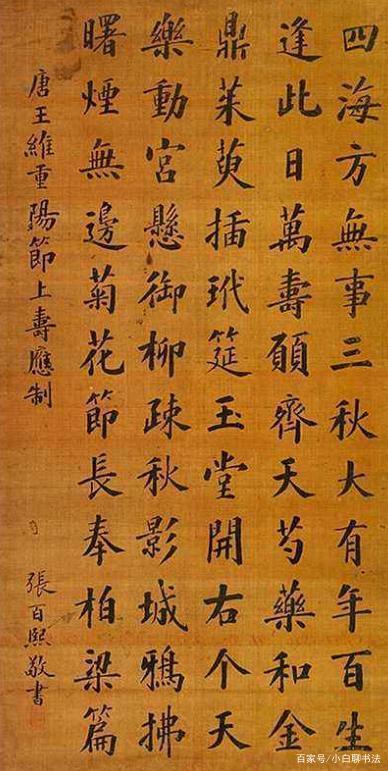 四海方無事三秋大有年百生
逢此日萬壽願齊天芍藥和金
鼎茱萸插玳筵玉堂開右个天
樂動宮懸御柳疎秋影城鴉拂
曙煙無邊菊花節長奉柏梁篇
唐王維重陽節上壽應制
張百熙敬書
百家号/小白聊书法